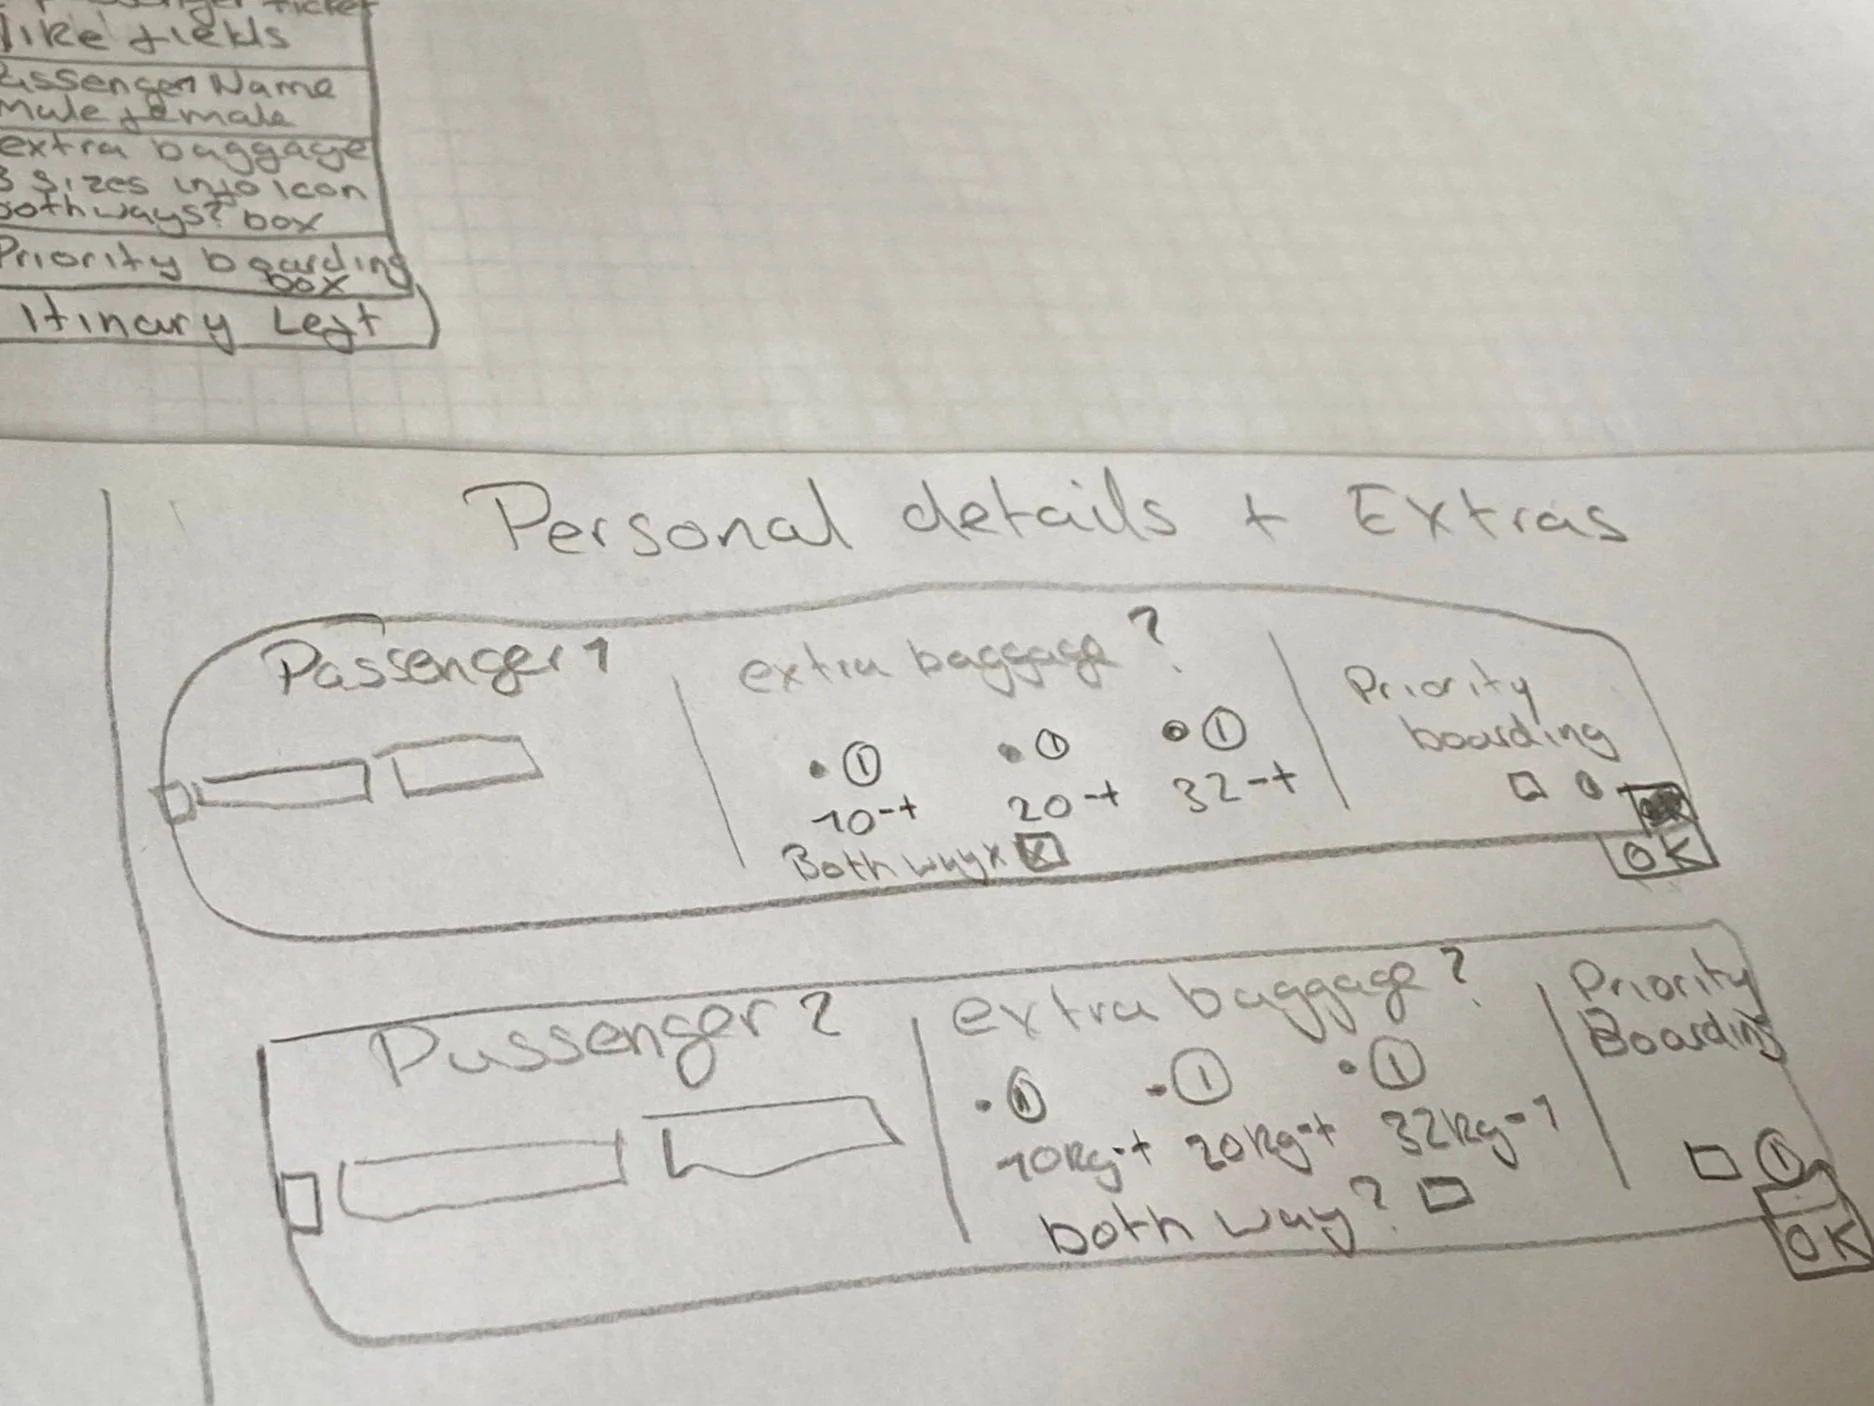 like fields
Passenger Name
male female
extra baggage
3 sizes info icon
both ways? box
Priority boarding
box
Itinary Left
Personal details + Extras
Passenger 1
extra baggage?
Priority
boarding
10-+ 20-+ 32-+
Both ways
OK
Passenger 2
extra baggage?
Priority
Boarding
10kg-+ 20kg-+ 32kg-+
both way?
OK